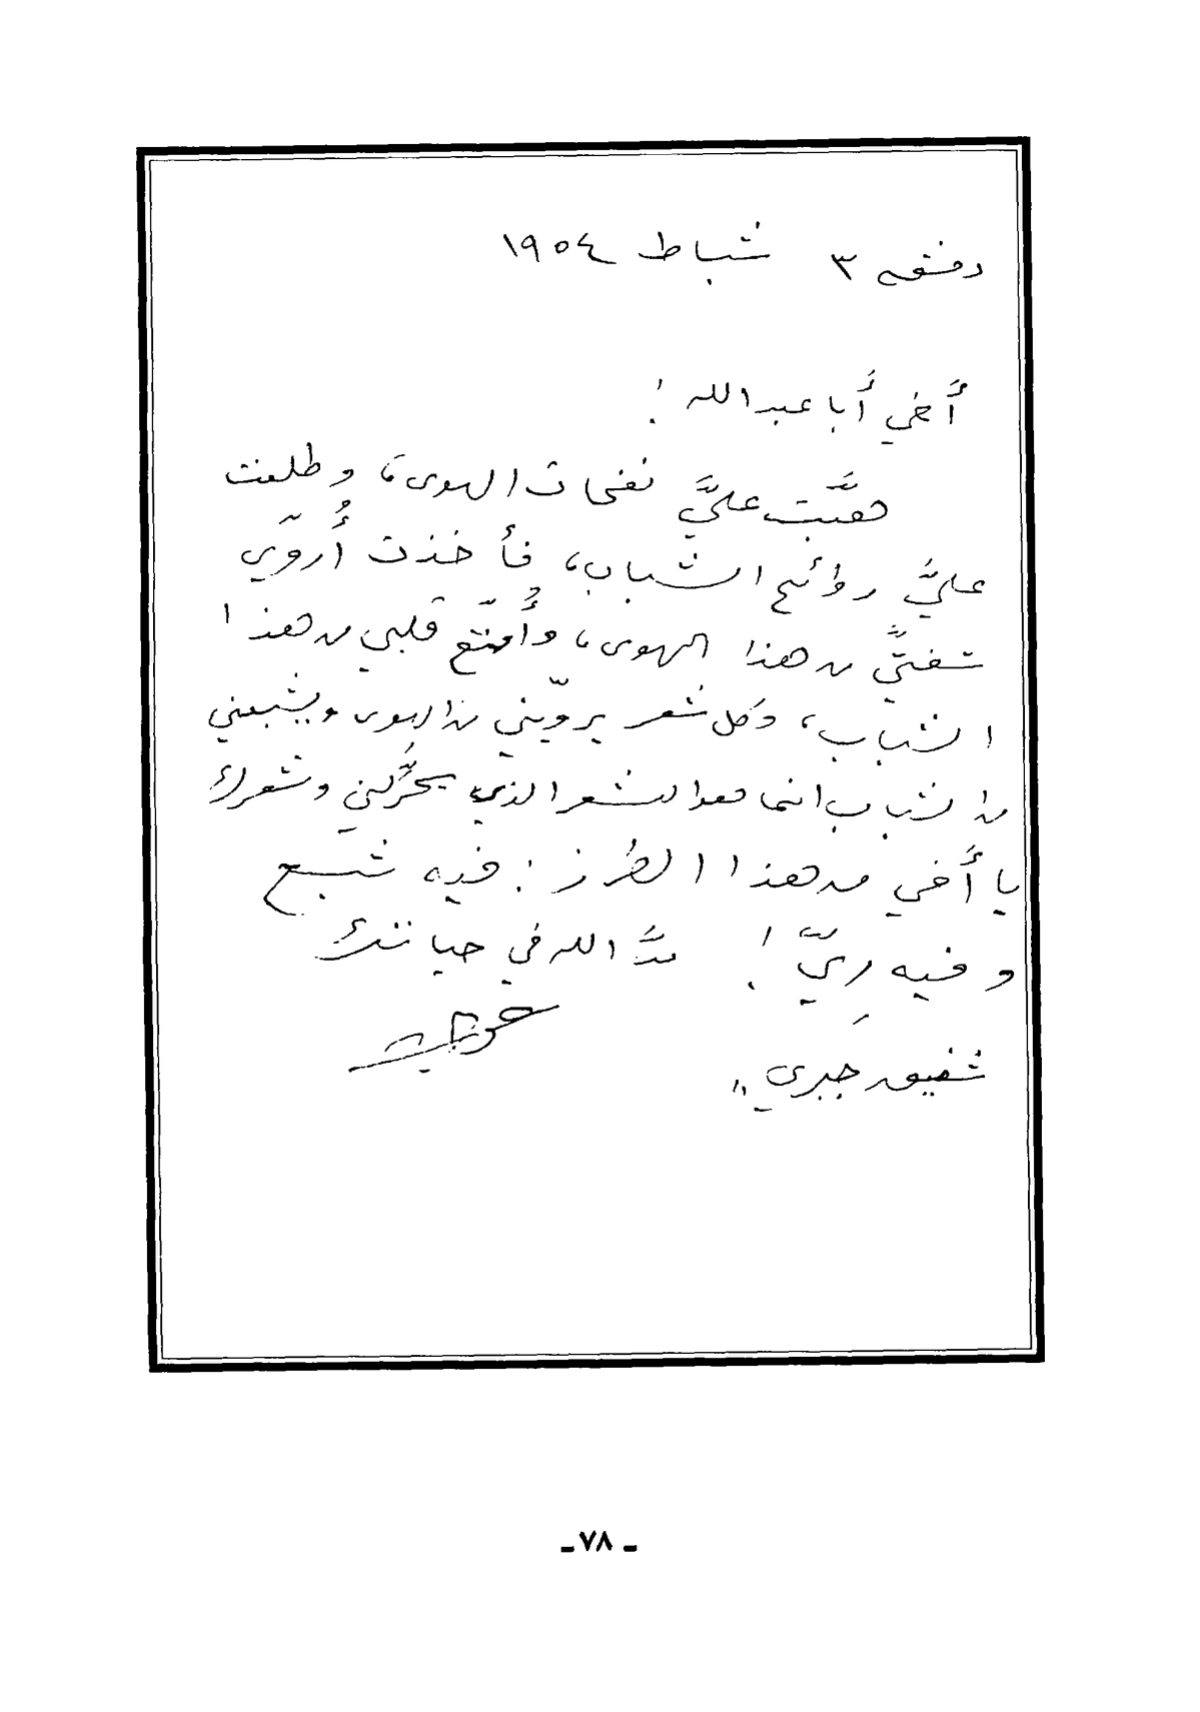 دمشق ٣ شباط ١٩٥٤
أَخي أَبا عبد الله !
هبَّت عليَّ نفحات الهوى، وطلعت
عليَّ روائح الشباب، فأخذت أُروّي
شفتيَّ من هذا الهوى، وأُمتّع قلبي من هذا
الشباب، وكل شعر يروّيني من الهوى ويشبعني
من الشباب انما هو الشعر الذي يحرَّكني وشعرك
يا أَخي من هذا الطرز : فيه شبع
وفيه رِيّ ! مدَّ الله في حياتك
شفيق جبري "
ـ ٧٨ ـ